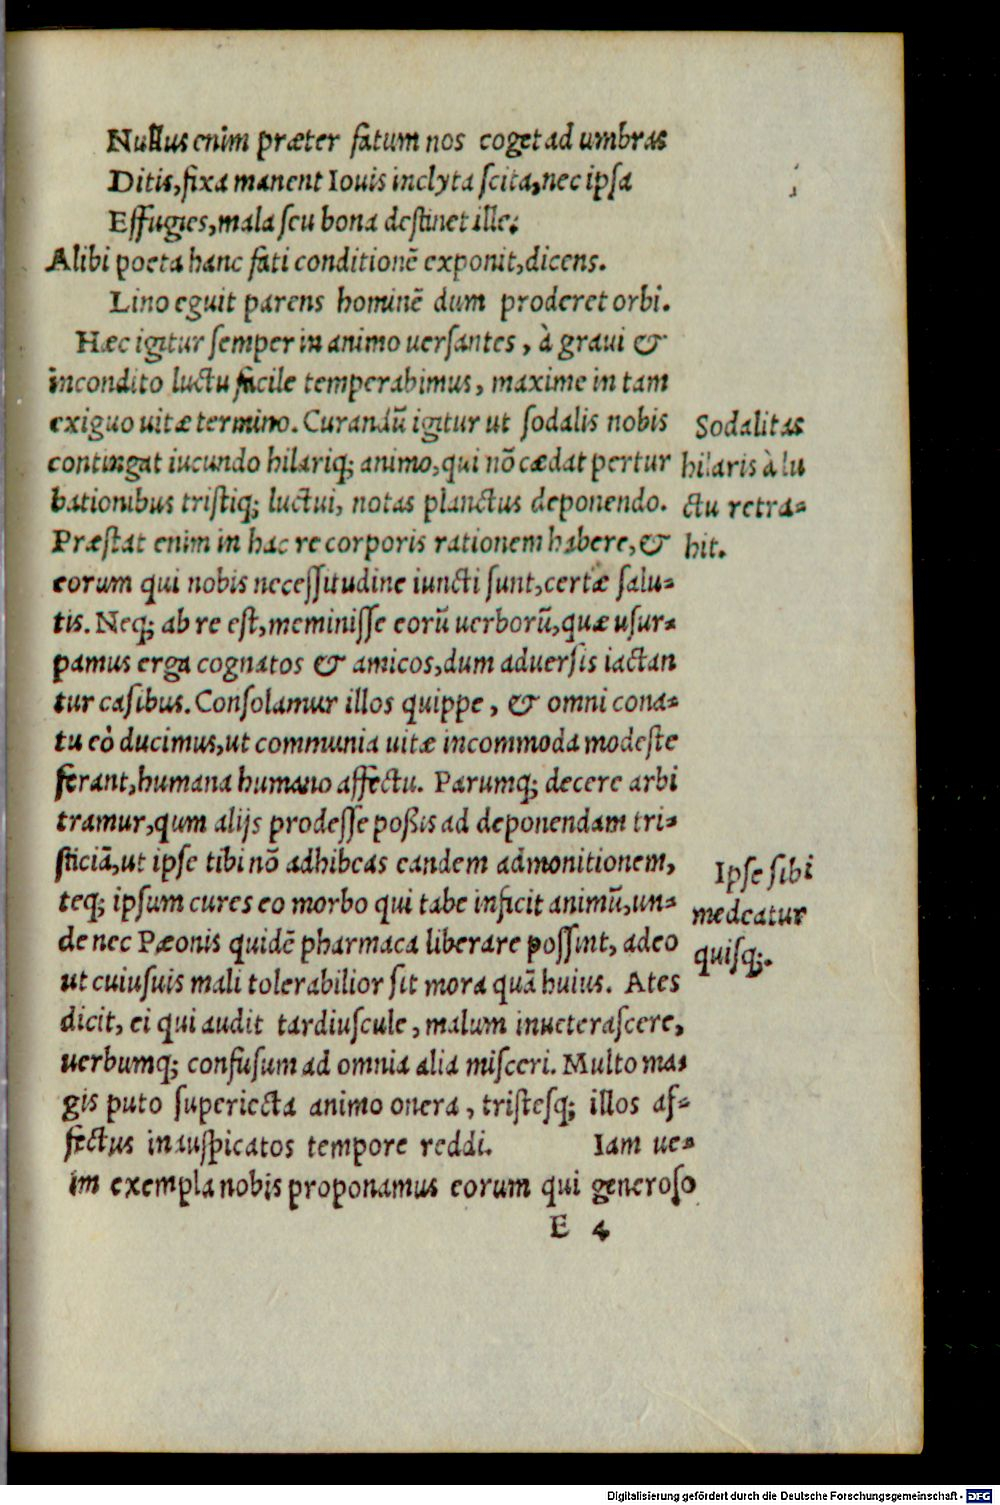 Nullus enim præter fatum nos coget ad umbras
Ditis, fixa manent Iouis inclyta scita, nec ipsa
Effugies, mala seu bona destinet ille:
Alibi poeta hanc fati conditionē exponit, dicens.
Lino eguit parens hominē dum proderet orbi.
Hæc igitur semper in animo uersantes, à graui &
incondito luctu facile temperabimus, maxime in tam
exiguo uitæ termino. Curandū igitur ut sodalis nobis
contingat iucundo hilariq; animo, qui nō cædat pertur
bationibus tristiq; luctui, notas planctus deponendo.
Præstat enim in hac re corporis rationem habere, &
eorum qui nobis necessitudine iuncti sunt, certæ salu-
tis. Neq; ab re est, meminisse eorū uerborū, quæ usur-
pamus erga cognatos & amicos, dum aduersis iactan
tur casibus. Consolamur illos quippe, & omni cona-
tu eò ducimus, ut communia uitæ incommoda modeste
ferant, humana humano affectu. Parumq; decere arbi
tramur, qum alijs prodesse poßis ad deponendam tri-
sticiā, ut ipse tibi nō adhibeas eandem admonitionem,
teq; ipsum cures eo morbo qui tabe inficit animū, un-
de nec Pæonis quidē pharmaca liberare possint, adeo
ut cuiusuis mali tolerabilior sit mora quā huius. Ates
dicit, ei qui audit tardiuscule, malum inueterascere,
uerbumq; confusum ad omnia alia misceri. Multo ma-
gis puto superiecta animo onera, tristesq; illos af-
fectus inauspicatos tempore reddi. Iam ue-
im exempla nobis proponamus eorum qui generoso
E 4
Sodalitas
hilaris à lu
ctu retra-
hit.
Ipse sibi
medeatur
quisq;.
Digitalisierung gefördert durch die Deutsche Forschungsgemeinschaft - DFG